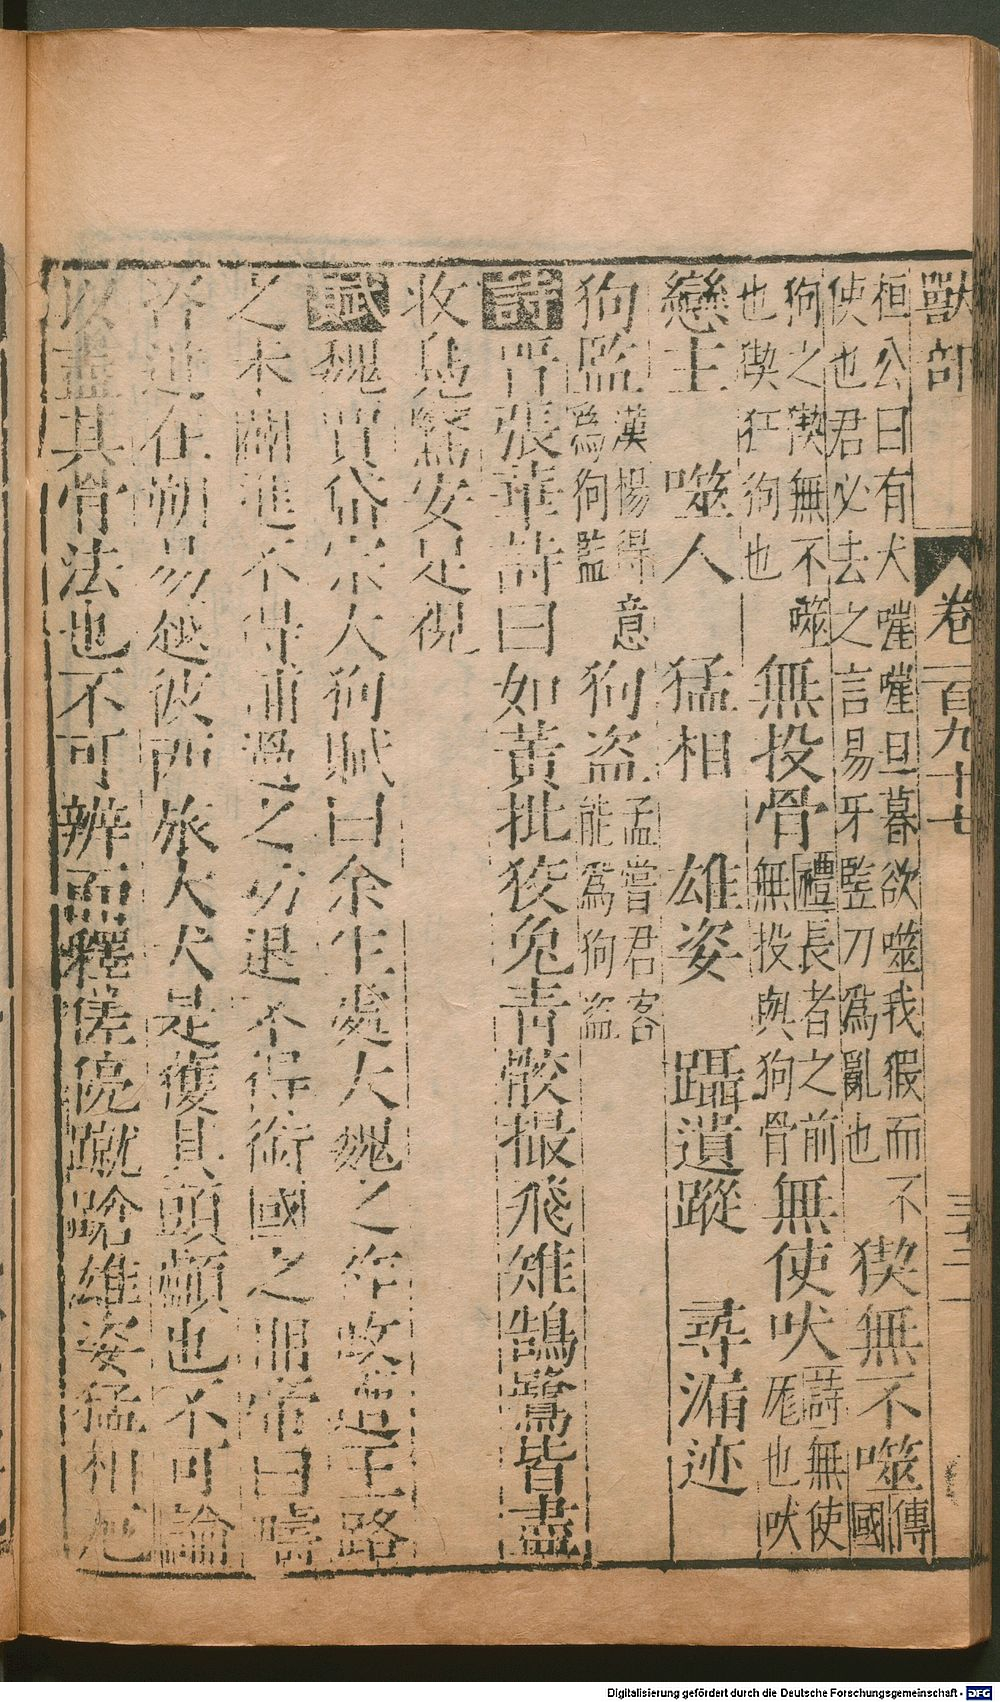 獸部 卷一百九十七 三十二
桓公曰有犬嘊嘊旦暮欲噬我猳而不
使也君必去之言易牙豎刀爲亂也 猰無不噬 傳國
狗之猰無不噬
也猰狂狗也 無投骨 禮長者之前無投與狗骨 無使吠 詩無使尨也吠
戀主 噬人 猛相 雄姿 躡遺蹤 尋漏迹
狗監 漢楊得意爲狗監 狗盜 孟嘗君客能爲狗盜
詩 晋張華詩曰如黃批狡兔青骹撮飛雉鵠鷺皆盡
收鳧鷖安足視
賦 魏賈岱宗大狗賦曰余生處大魏之 政遵王路
之未闢進不得 之功退不得 國之 帝曰疇
咨進在朔易越彼西旅大犬是獲其頭顱也不可論
以盡其骨法也不可辨而釋傞傍蹴蹌雄姿猛相
Digitalisierung gefördert durch die Deutsche Forschungsgemeinschaft - DFG